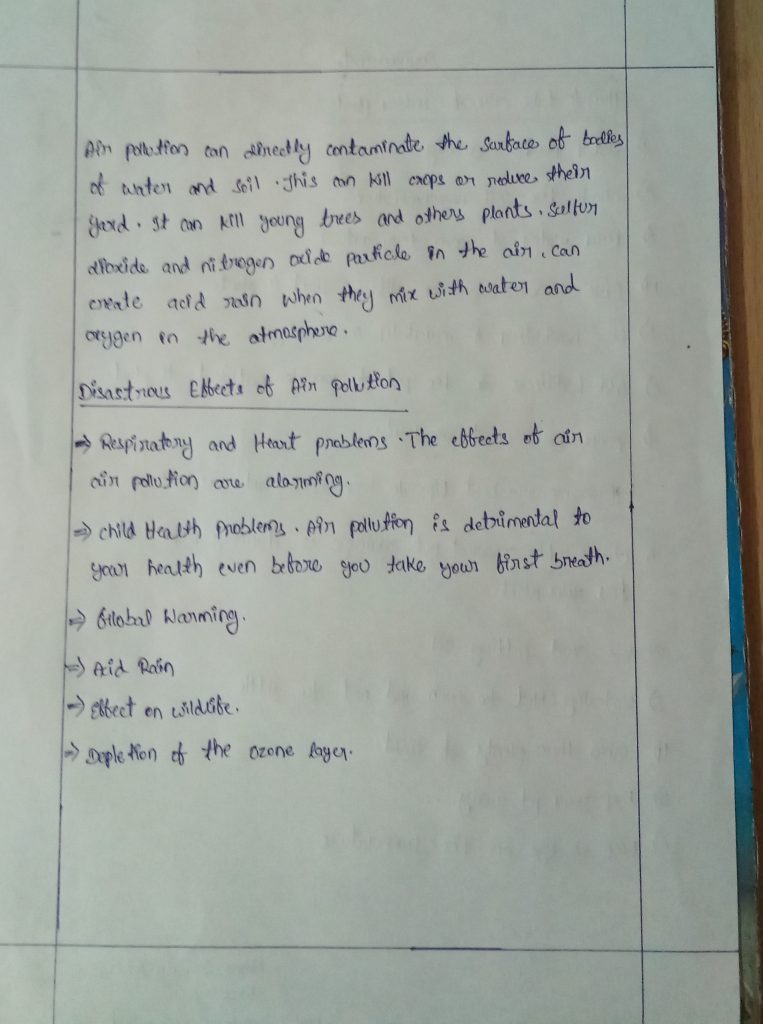 Air pollution can directly contaminate the surface of bodies
of water and soil. This can kill crops or reduce their
yard. It can kill young trees and others plants. Sulfur
dioxide and nitrogen oxide particle in the air, can
create acid rain when they mix with water and
oxygen in the atmosphere.
Disastrous Effects of Air pollution
⇒ Respiratory and Heart problems. The effects of air
air pollution are alarming.
⇒ child Health Problems. Air pollution is detrimental to
your health even before you take your first breath.
⇒ Global Warming.
⇒ Aid Rain
⇒ Effect on wildlife.
⇒ Depletion of the ozone layer.